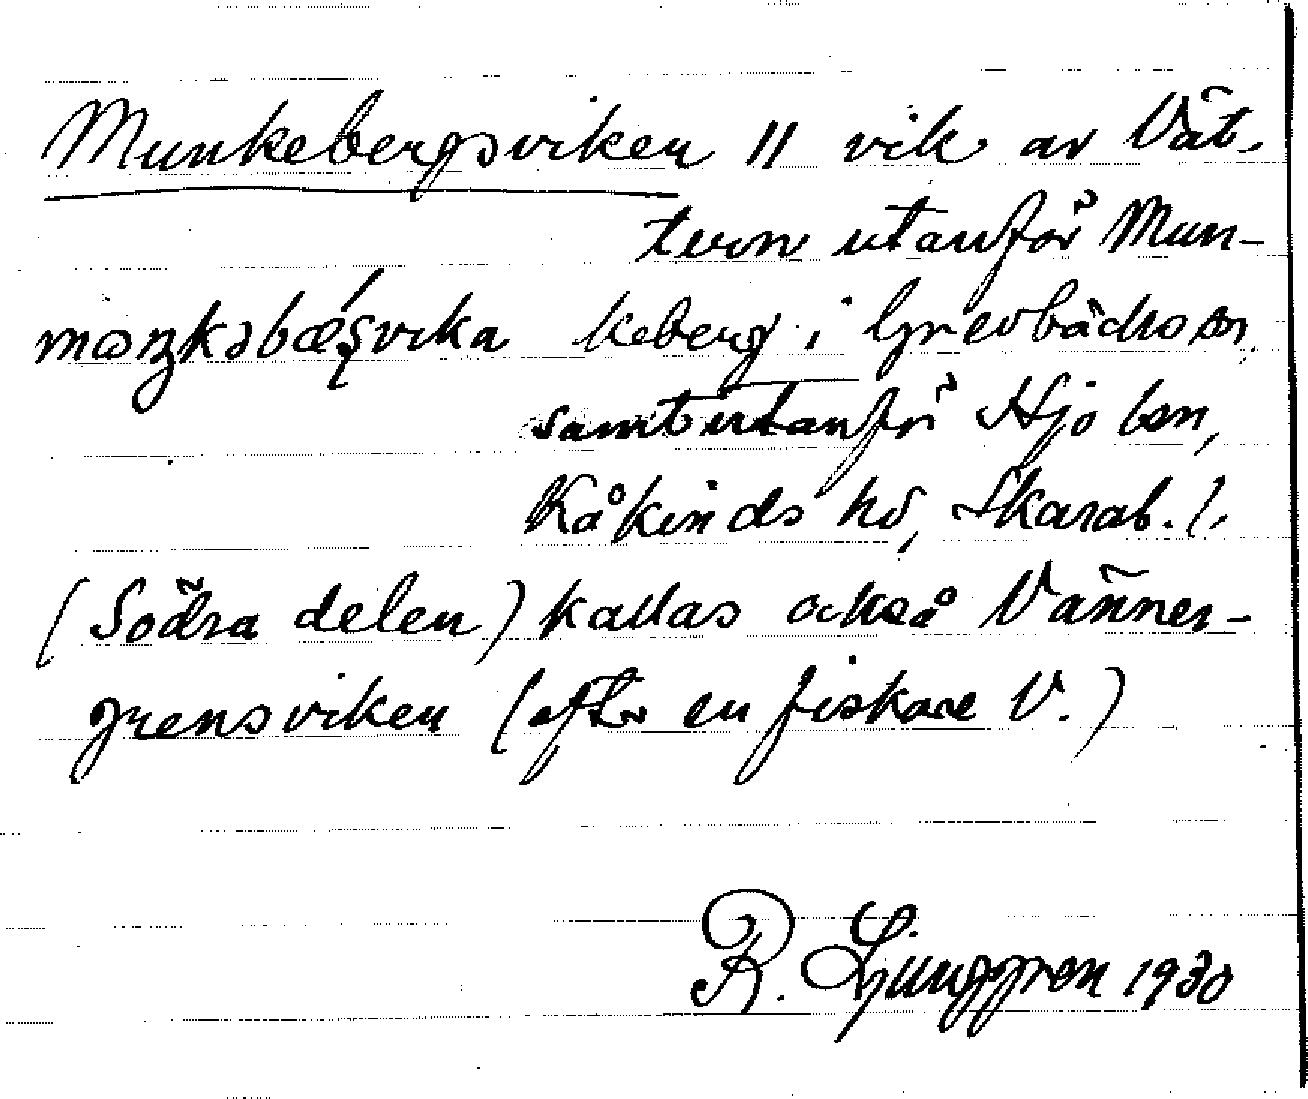 Munkebergsviken || vik av Vät-
tern utanför Mun-
keberg i Grevbäcks sn,
samt utanför Hjo lsn,
Kåkinds hd, Skarab. l.
(Södra delen) kallas också Vänner-
grensviken (efter en fiskare V.)
R. Ljunggren 1930